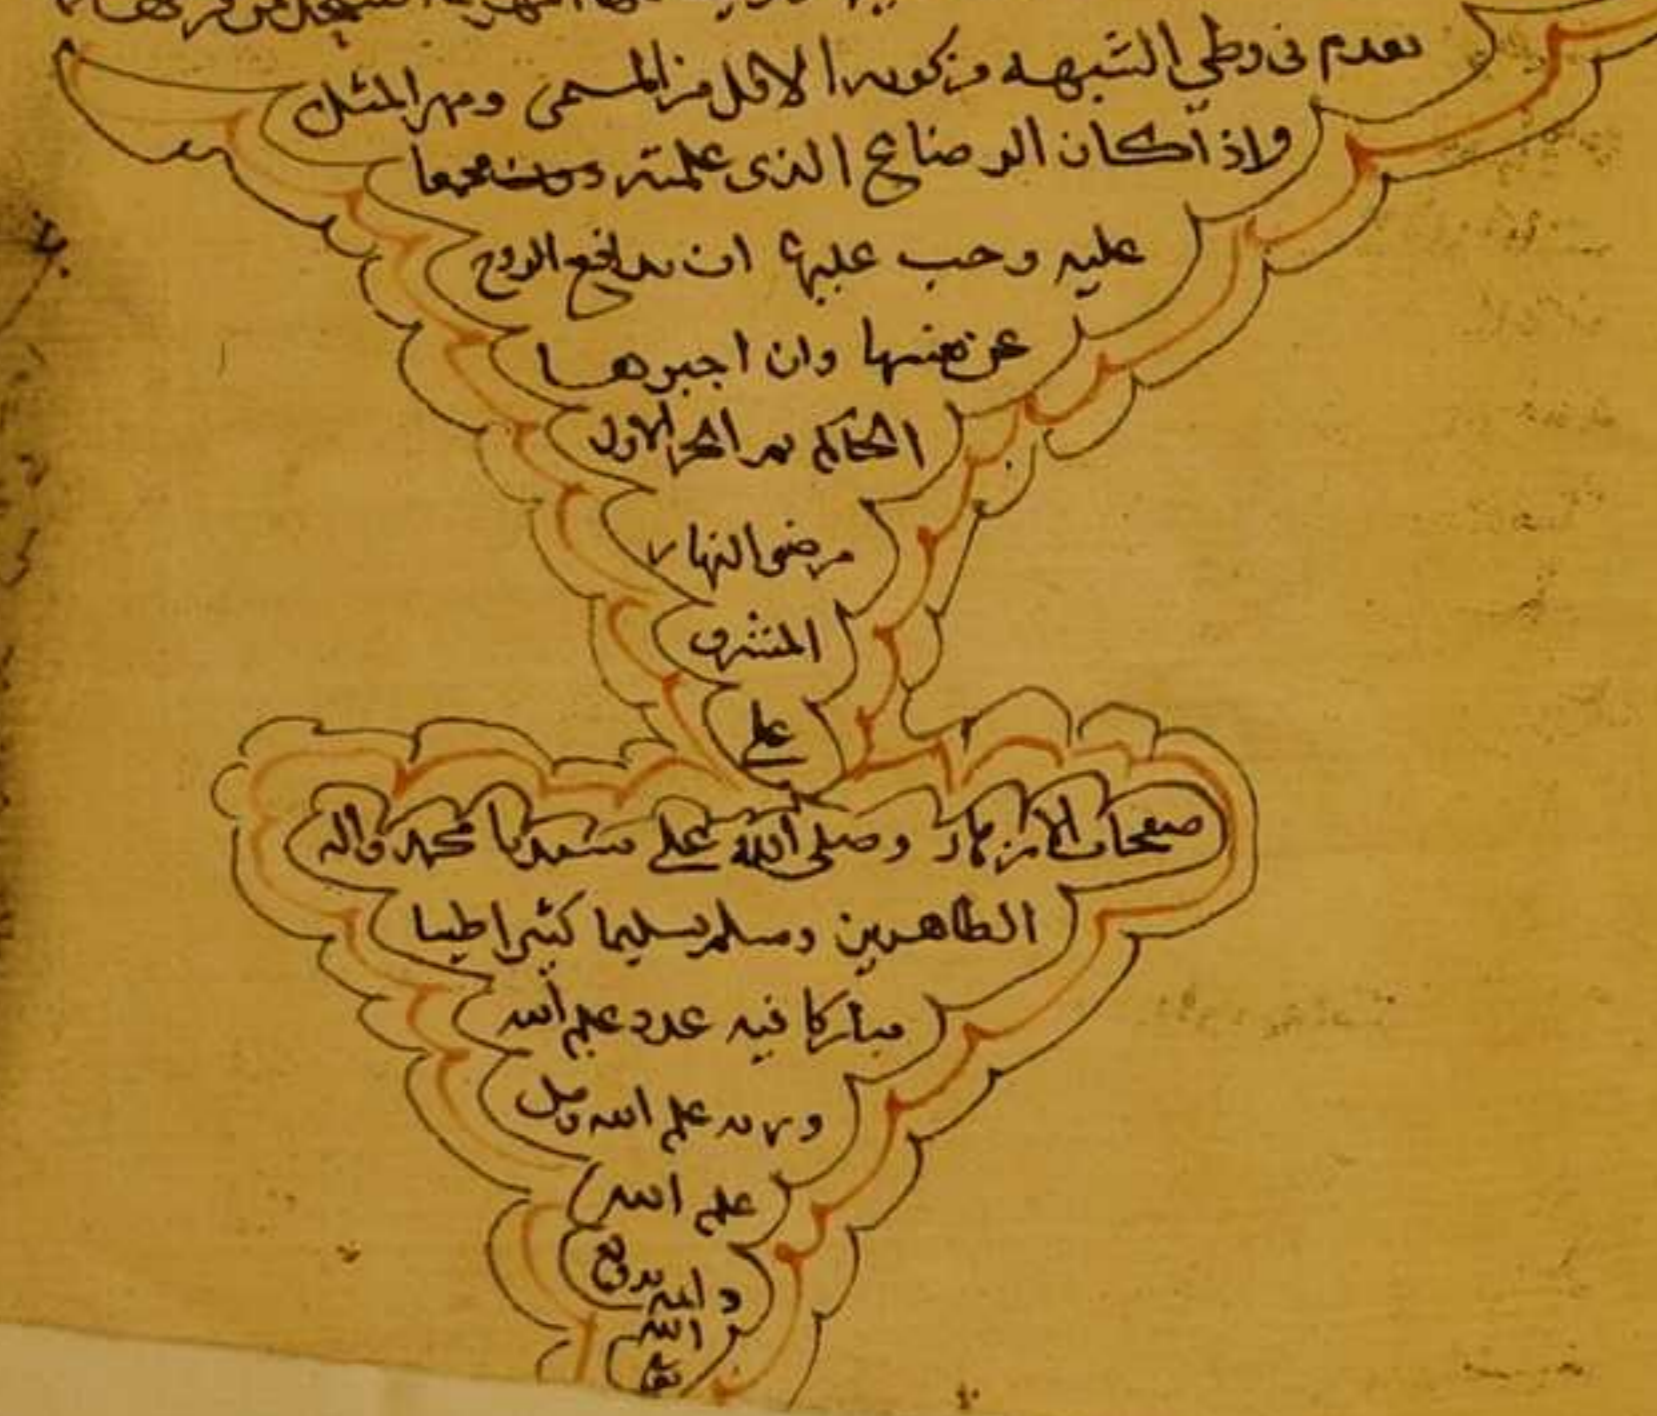 تقدم في وطي الشبهه من كونه الاقل من المسمى ومهر المثل
واذا كان الرضاع الذي علمته
عليه وجب عليها ان تدافع الزوج
عن نفسها وان اجبرها
الحاكم تم الجزء الاول
من ضوء النهار
المشرق
على
صفحات الازهار وصلى الله على سيدنا محمد واله
الطاهرين وسلم تسليما كثيرا طيبا
مباركا فيه عدد علم الله
وزنه علم الله ومل
علم الله